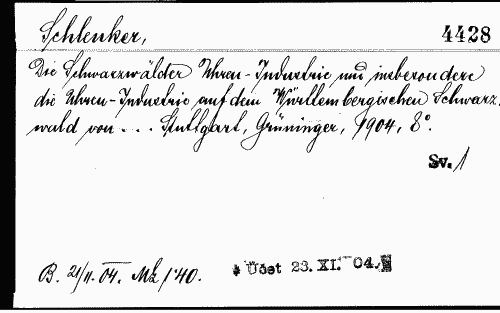 Schlenker,
4428
Die Schwarzwälder Uhren-Industrie und insbesondere
die Uhren-Industrie auf dem Württembergischen Schwarz
wald von . . . Stuttgart, Grüninger, 1904, 8°.
Sv. 1
B. 21/11. 04. Mk 1'40.
Üdet 23. XI. 04.